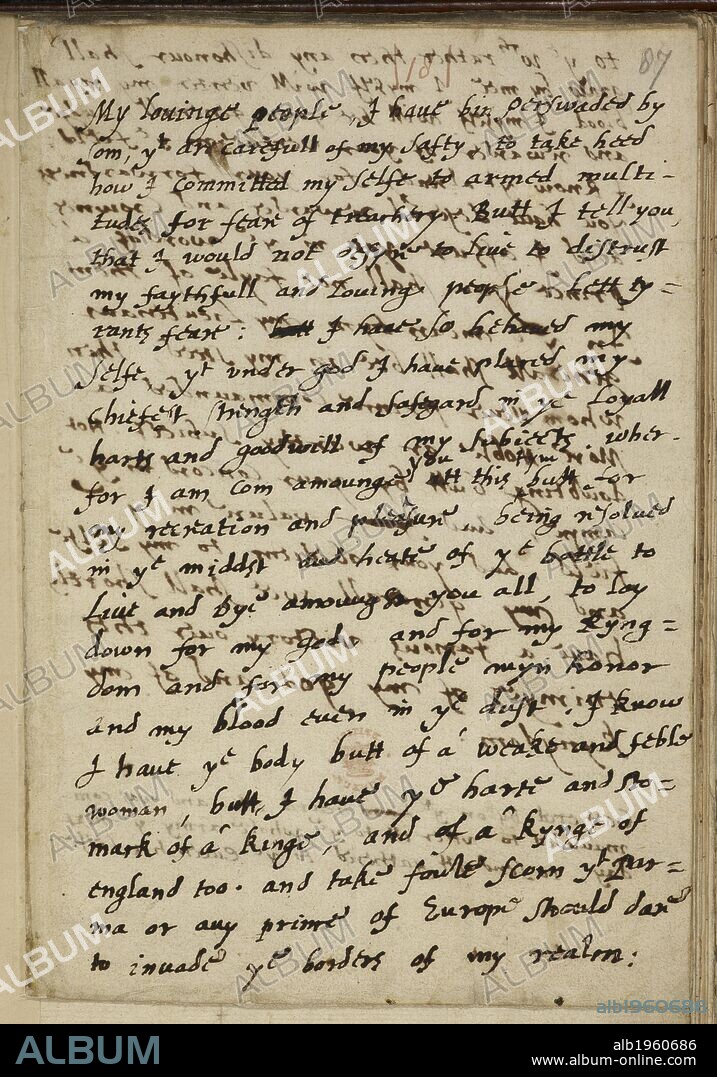 87
My louinge people, I haue bin perswaded by
som, yt are carefull of my safty to take heed
how I committed my selfe to armed multi-
tudes for fear of treachery. Butt I tell you,
that I would not desyre to liue to distrust
my faythfull and louinge people. Lett ty=
rants feare: I haue so behaued my
selfe yt vnder god I haue placed my
chiefest strength and safgard in ye Loyall
harts and goodwill of my subiects. wher-
for I am com amounge you att this butt for
my recreation and pleasure being resolued
in ye middst and heate of ye battle to
Liue and Dye amoungst you all, to lay
down for my god, and for my Kyng=
dom and for my people myn honor
and my blood euen in ye dust. I know
I haue ye body butt of a weake and feble
woman, butt I haue ye harte and sto=
mack of a kinge, and of a kynge of
england too. and take foule scorn yt Par=
ma or any prince of Europe should dare
to inuade ye borders of my realm:
ALBUM
alb1960686
www.album-online.com